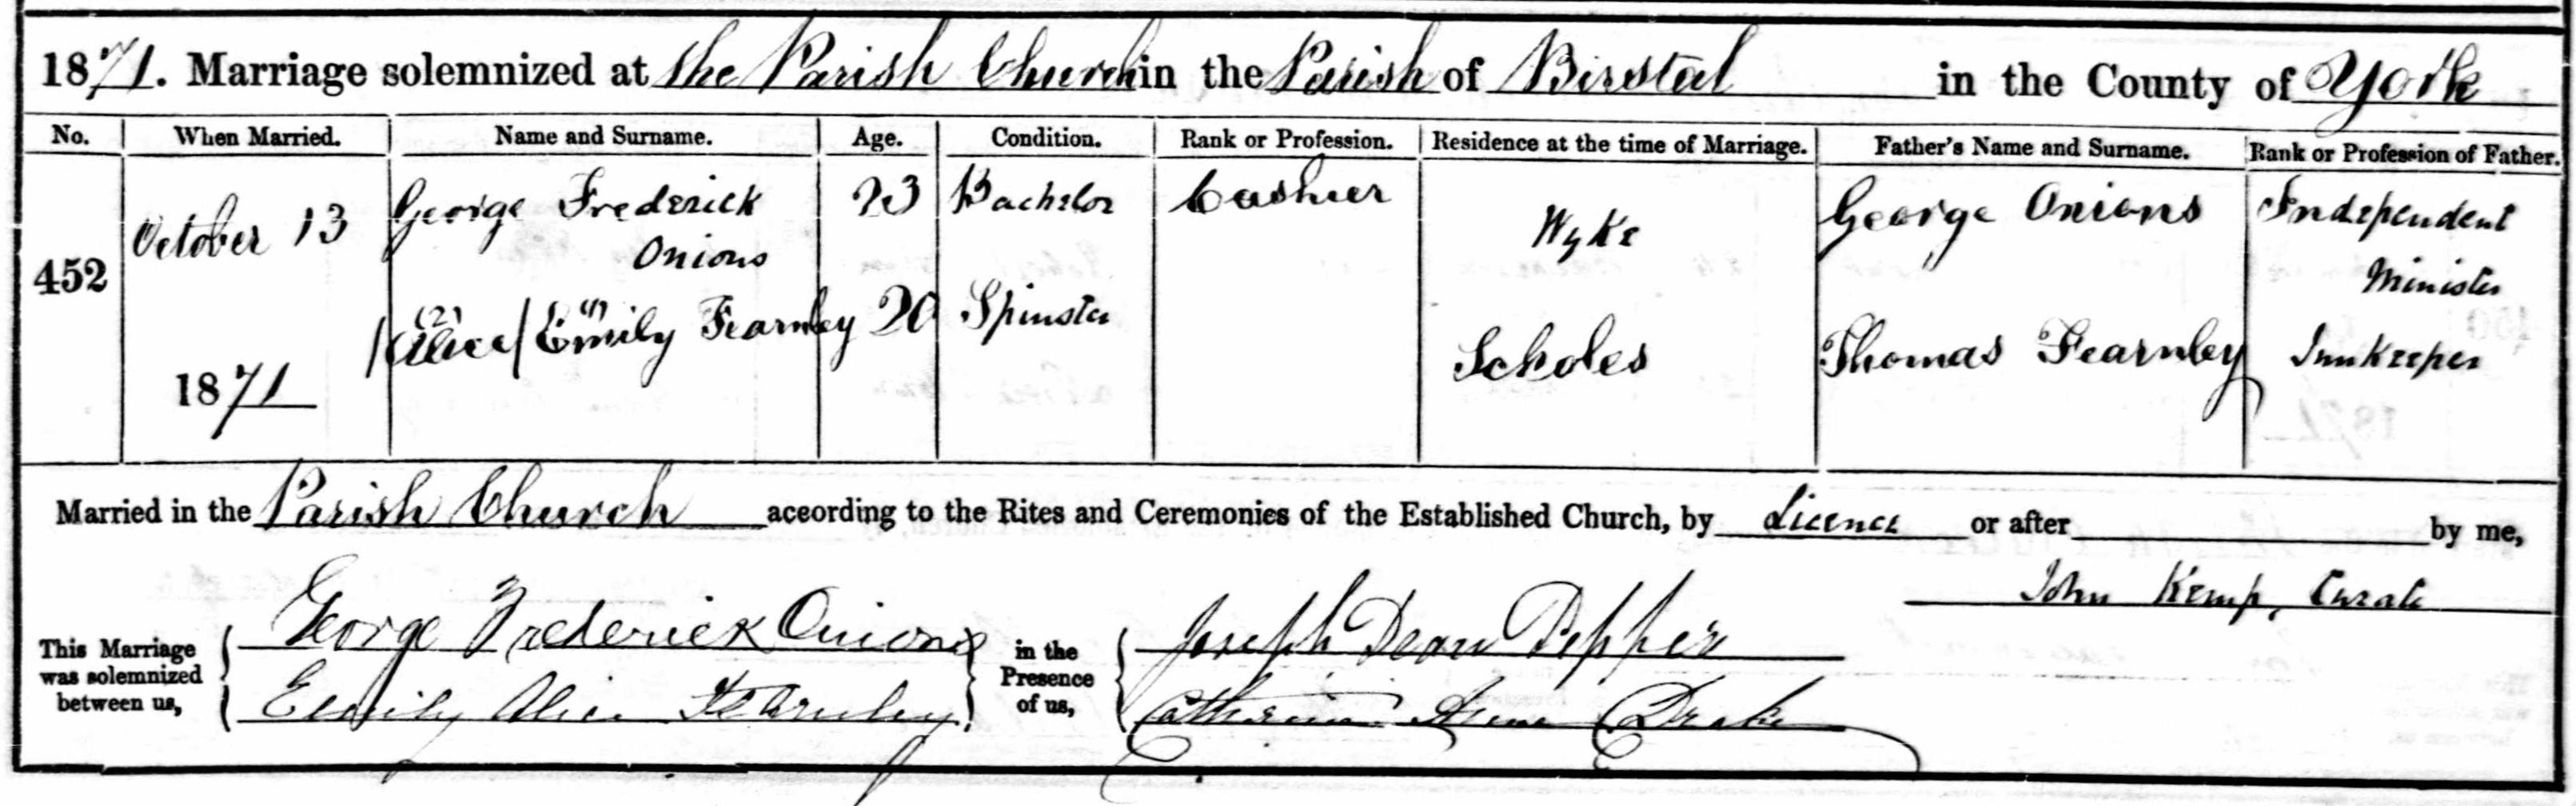 1871. Marriage solemnized at the Parish Church in the Parish of Birstal in the County of York
No. When Married. Name and Surname. Age. Condition. Rank or Profession. Residence at the time of Marriage. Father's Name and Surname. Rank or Profession of Father.
452 October 13 1871
George Frederick Onions 23 Bachelor Cashier Wyke George Onions Independent Minister
(2) (1)
/Alice/ Emily Fearnley 20 Spinster Scholes Thomas Fearnley Innkeeper
Married in the Parish Church according to the Rites and Ceremonies of the Established Church, by Licence or after by me,
John Kemp, Curate
This Marriage was solemnized between us,
George Frederick Onions
Emily Alice Fearnley
in the Presence of us,
Joseph Dean Pepper
Catherine Anne Drake